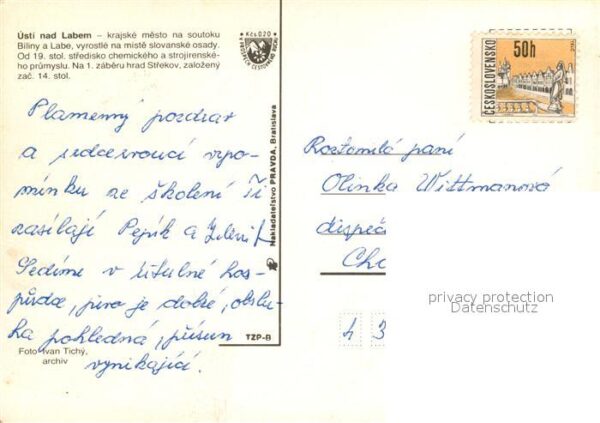 Ústí nad Labem – krajské město na soutoku
Bíliny a Labe, vyrostlé na místě slovanské osady.
Od 19. stol. středisko chemického a strojírenské-
ho průmyslu. Na 1. záběru hrad Střekov, založený
zač. 14. stol.
Kčs 0,20
Plamenný pozdrav
a srdcervoucí vzpo-
mínku ze školení Ti
zasílají Pepík a
Sedíme v útulné hos-
půdce, pivo je dobré, obslu-
ha pohledná, přísun
vynikající.
Foto Ivan Tichý,
archiv
Nakladatelství PRAVDA, Bratislava
TZP-B
ČESKOSLOVENSKO
50h
Roztomilá paní
Olinka Wittmanová
dispeč
Ch
4 3
privacy protection
Datenschutz